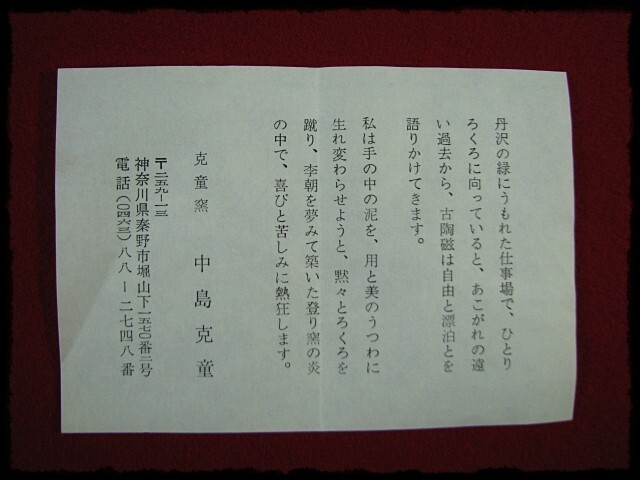 丹沢の緑にうもれた仕事場で、ひとり
ろくろに向っていると、あこがれの遠
い過去から、古陶磁は自由と漂泊とを
語りかけてきます。
私は手の中の泥を、用と美のうつわに
生れ変わらせようと、黙々とろくろを
蹴り、李朝を夢みて築いた登り窯の炎
の中で、喜びと苦しみに熱狂します。
克童窯 中島克童
〒二五九−一三
神奈川県秦野市堀山下一五七〇番二号
電話(〇四六三)八八−二七四八番